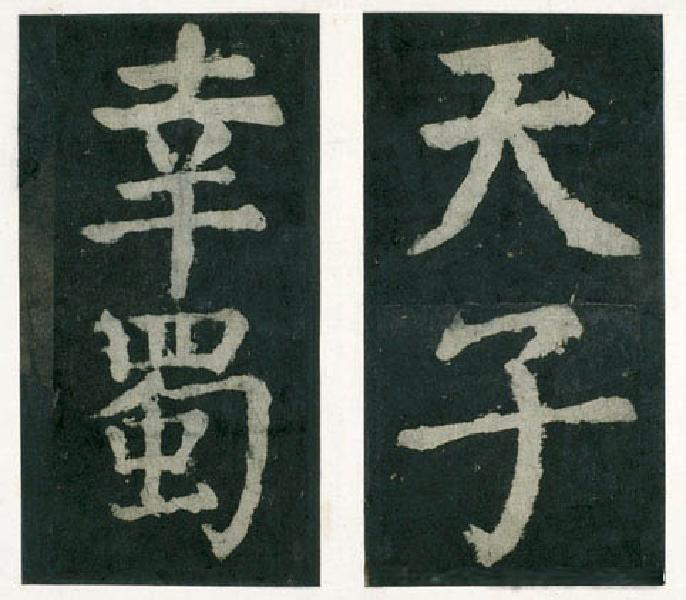 天子
幸蜀